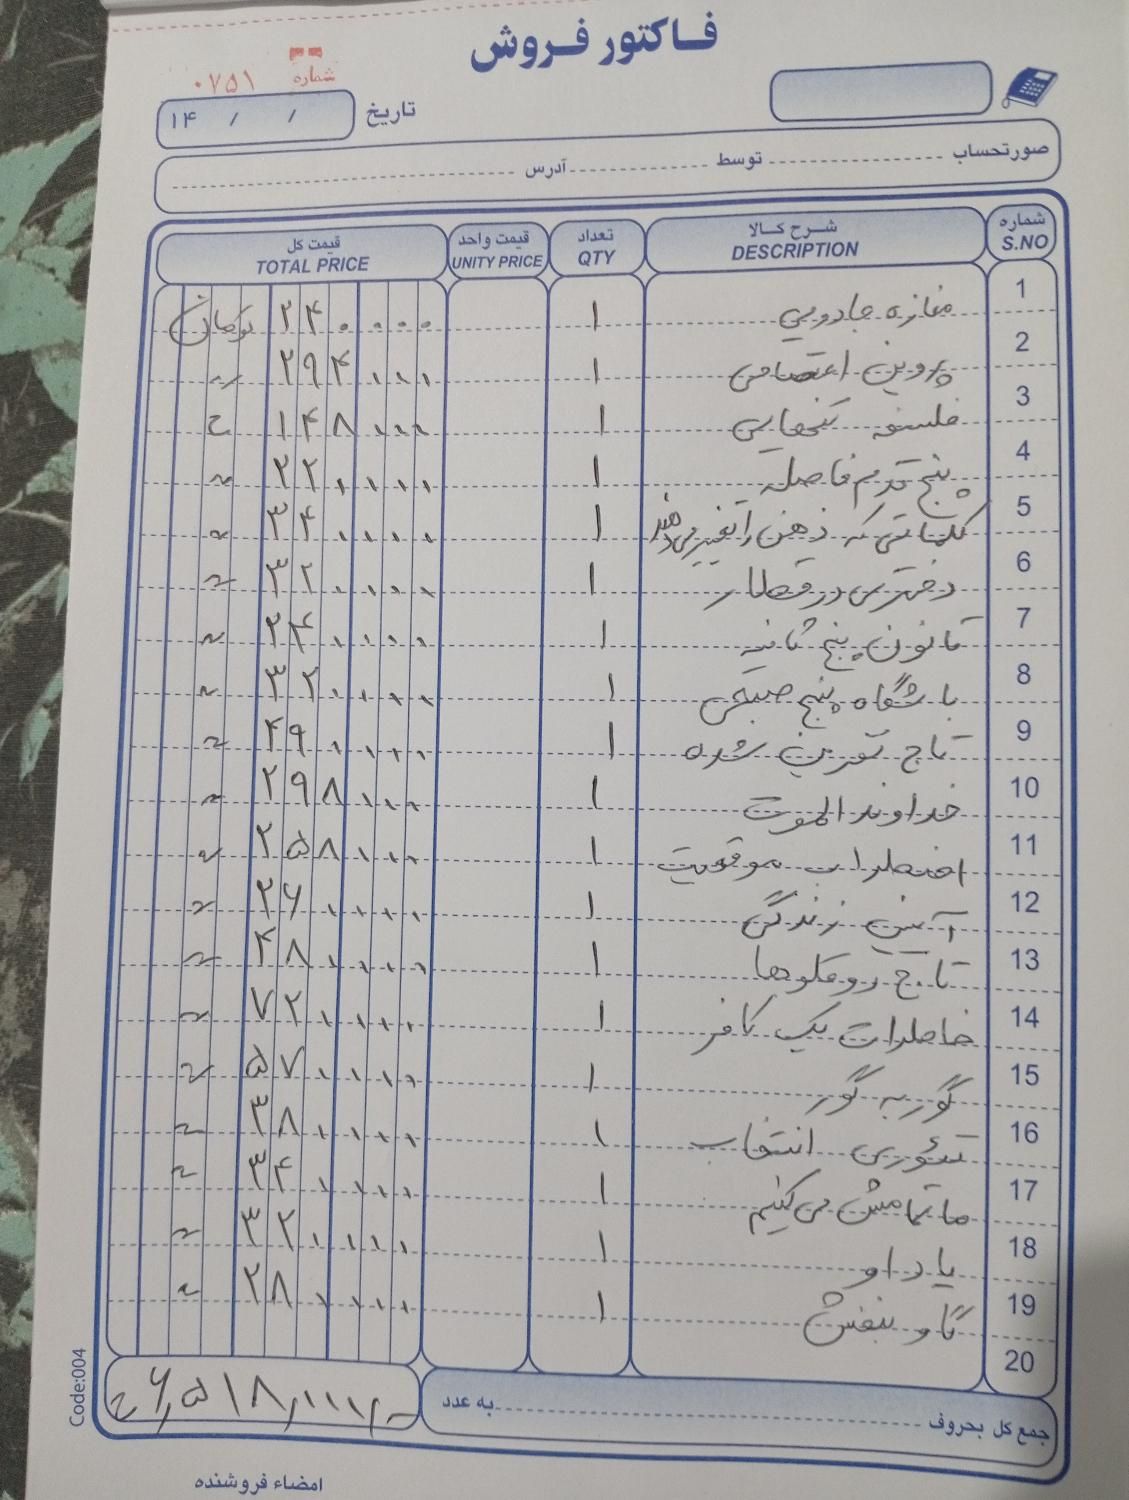 فاکتور فروش
شماره ۰۷۵۱
تاریخ / / ۱۴
صورتحساب توسط آدرس
شماره S.NO شرح کالا DESCRIPTION تعداد QTY قیمت واحد UNITY PRICE قیمت کل TOTAL PRICE
1 مغازه جادویی ۱ ۲۴۰۰۰۰ تومان
2 پروین اعتصامی ۱ ۲۹۴۰۰۰ ~
3 فلسفه تنهایی ۱ ۱۴۸۰۰۰ ~
4 پنج قدم فاصله ۱ ۲۲۰۰۰۰ ~
5 کلماتی که ذهن را تغییر می‌دهند ۱ ۳۴۰۰۰۰ ~
6 دختری در قطار ۱ ۳۲۰۰۰۰ ~
7 قانون پنج ثانیه ۱ ۲۴۰۰۰۰ ~
8 باشگاه پنج صبحی ۱ ۳۲۰۰۰۰ ~
9 تاج نفرین شده ۱ ۴۹۰۰۰۰ ~
10 خداوند الموت ۱ ۲۹۸۰۰۰ ~
11 اضطراب موقعیت ۱ ۲۵۸۰۰۰ ~
12 آیین زندگی ۱ ۲۶۰۰۰۰ ~
13 تاج دو ملکوها ۱ ۴۸۰۰۰۰ ~
14 خاطرات یک کافر ۱ ۷۲۰۰۰۰ ~
15 گور به گور ۱ ۵۷۰۰۰۰ ~
16 تئوری انتخاب ۱ ۳۸۰۰۰۰ ~
17 ما تمامش می‌کنیم ۱ ۳۴۰۰۰۰ ~
18 یاد او ۱ ۳۲۰۰۰۰ ~
19 گاو بنفش ۱ ۲۸۰۰۰۰ ~
20
جمع کل بحروف به عدد ۶,۵۱۸,۰۰۰
امضاء فروشنده
Code:004